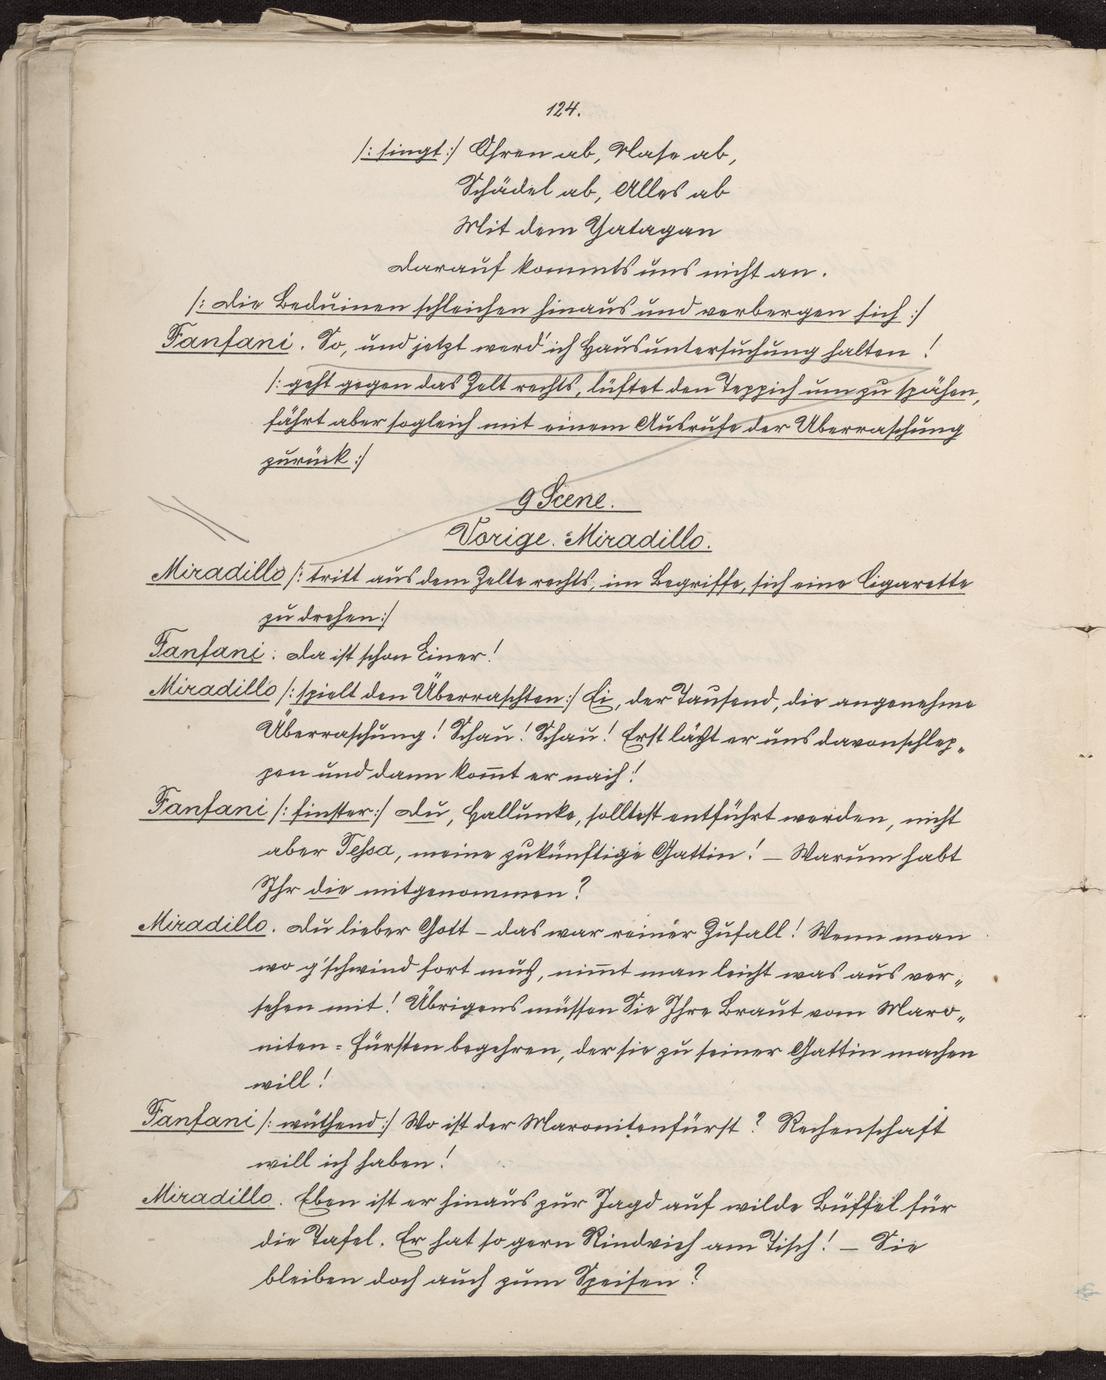 124.
/: singt :/ Ohren ab, Nase ab,
Schädel ab, Alles ab
Mit dem Yatagan
Darauf kommts uns nicht an.
/: Die Beduinen schleichen hinaus und verbergen sich :/
Fanfani. So, und jetzt werd' ich Hausuntersuchung halten !
/: geht gegen das Zelt rechts, lüftet den Teppich um zu spähen,
fährt aber sogleich mit einem Ausrufe der Überraschung
zurück :/
9 Scene.
Vorige. Miradillo.
Miradillo /: tritt aus dem Zelte rechts, im Begriffe, sich eine Cigarette
zu drehen :/
Fanfani : Da ist schon Einer !
Miradillo /: spielt den Überraschten :/ Ei, der Tausend, die angenehme
Überraschung ! Schau ! Schau ! Erst läßt er uns davonschlep„
pen und dann kom̅t er nach !
Fanfani /: finster :/ Du, Hallunke, solltest entführt werden, nicht
aber Tessa, meine zukünftige Gattin ! – Warum habt
Ihr die mitgenommen ?
Miradillo. Du lieber Gott – das war reiner Zufall ! Wenn man
wo g'schwind fort muß, nim̅t man leicht was aus ver„
sehen mit ! Übrigens müssen Sie Ihre Braut vom Maro„
niten = Fürsten begehren, der sie zu seiner Gattin machen
will !
Fanfani /: wüthend :/ Wo ist der Maronitenfürst ? Rechenschaft
will ich haben !
Miradillo. Eben ist er hinaus zur Jagd auf wilde Büffel für
die Tafel. Er hat so gern Rindvieh am Tisch ! – Sie
bleiben doch auch zum Speisen ?